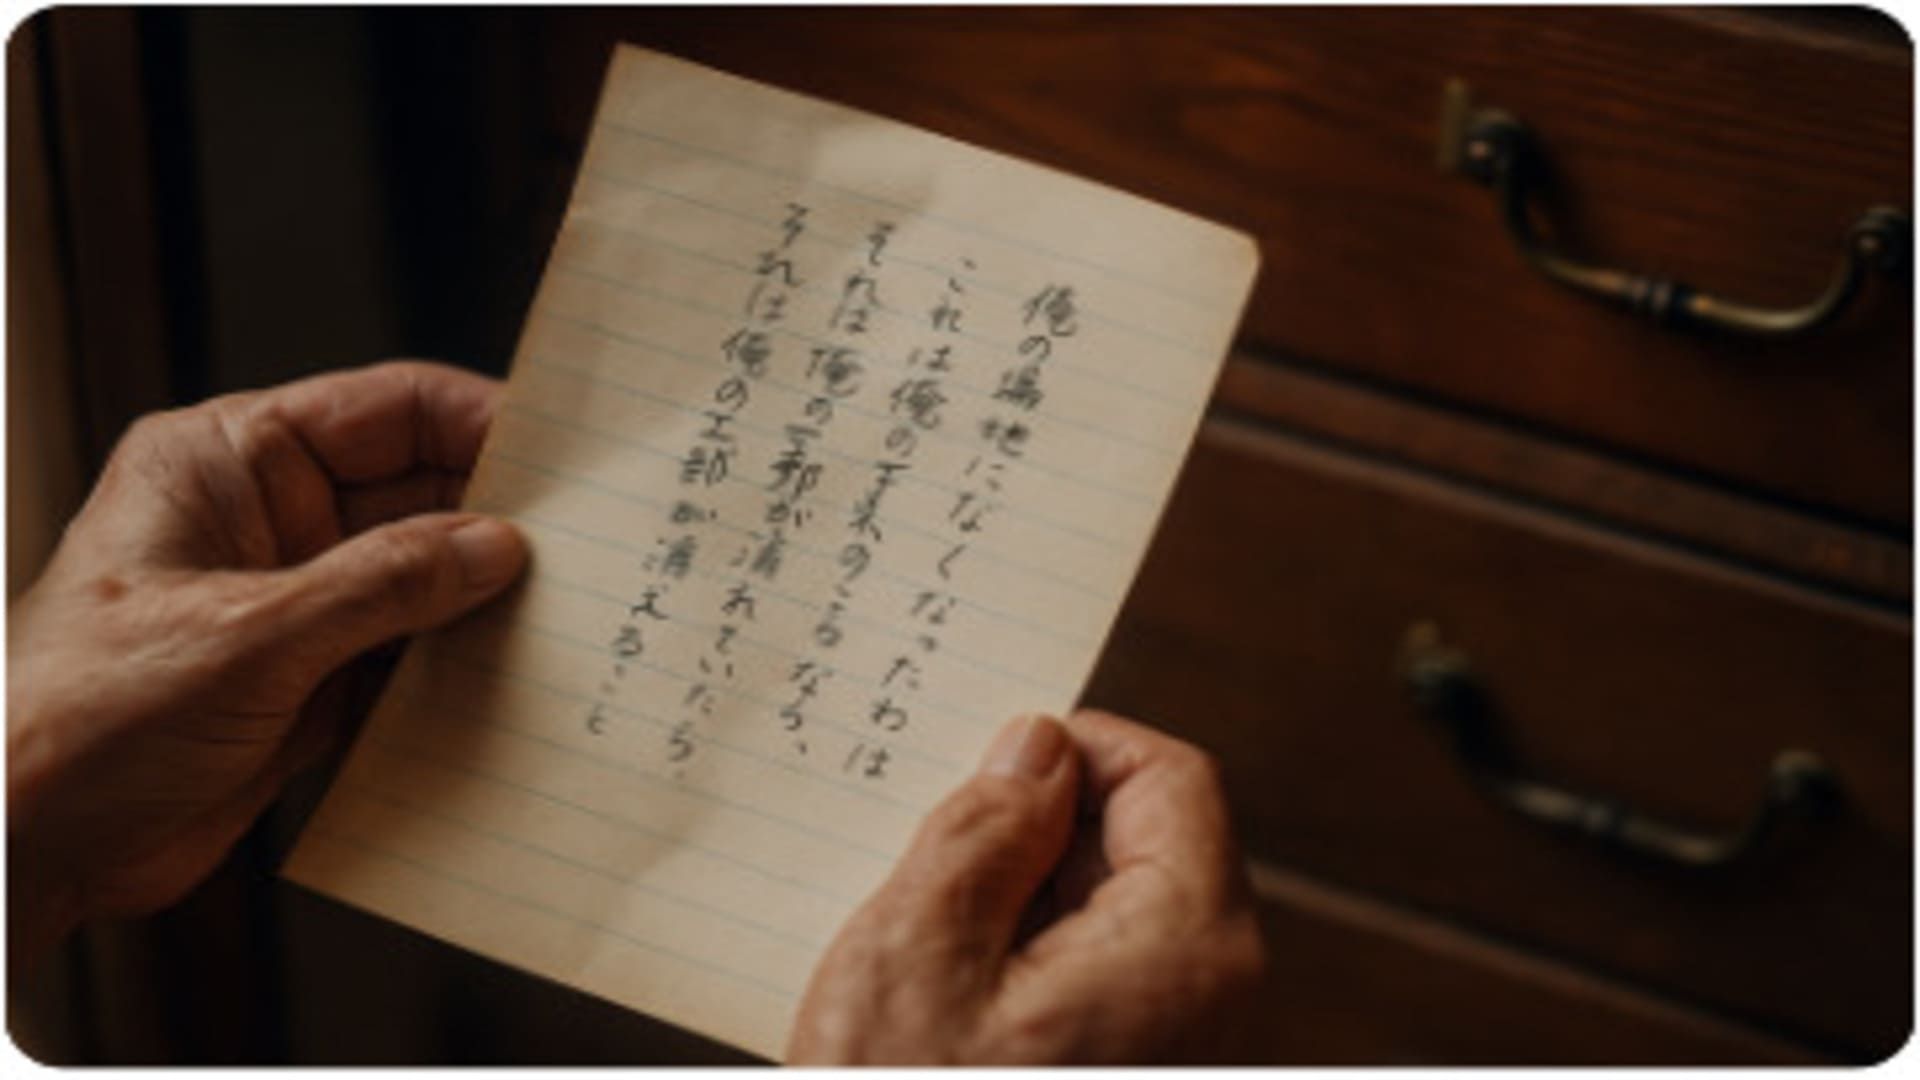 俺の場地になくなったわは
これは俺の未のこるなら、
それは俺の部が清れていたら、
それは俺の工部が消えること